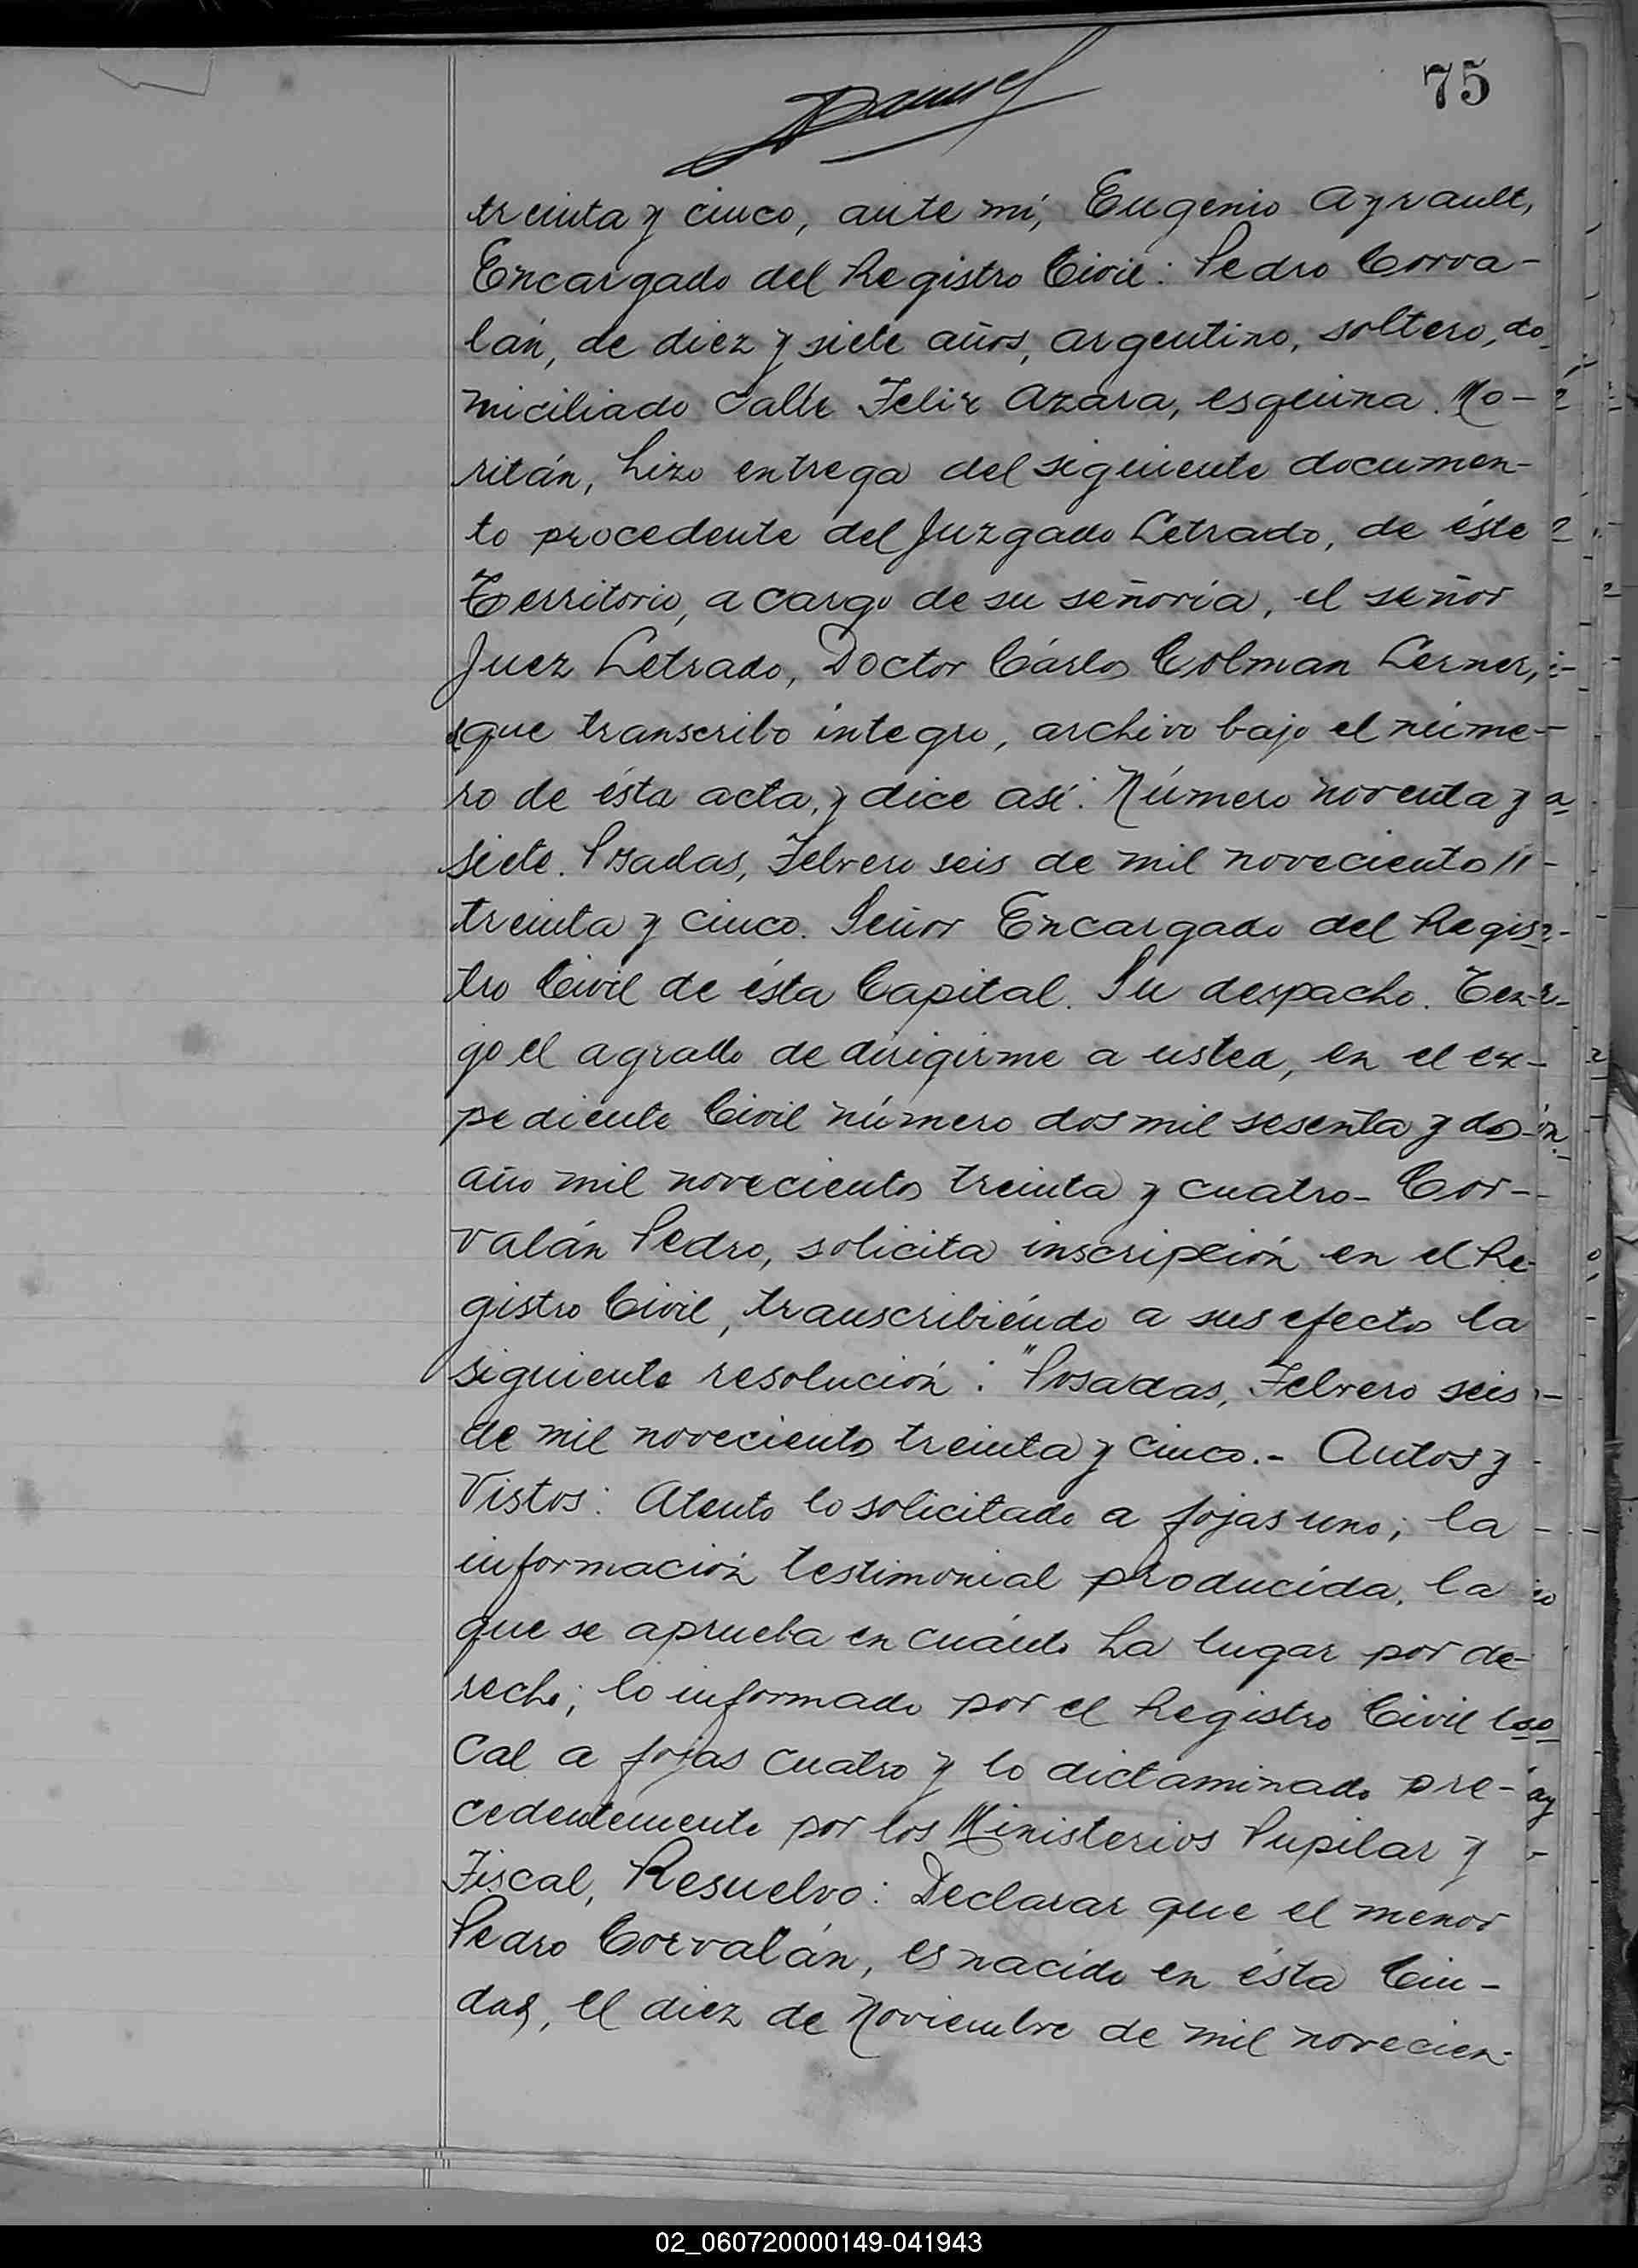 75
treinta y cinco, ante mí, Eugenio Ayrault,
Encargado del Registro Civil: Pedro Corva-
lán, de diez y siete años, argentino, soltero, do-
miciliado calle Felix Azara, esquina Mo-
ritán, hizo entrega del siguiente documen-
to procedente del Juzgado Letrado, de éste
Territorio, a cargo de su señoría, el señor
Juez Letrado, Doctor Cárlos Colman Lerner,
que transcribo íntegro, archivo bajo el núme-
ro de ésta acta, y dice así: Número noventa y
siete. Posadas, Febrero seis de mil novecientos
treinta y cinco. Señor Encargado del Regis-
tro Civil de ésta Capital. Su despacho. Ten-
go el agrado de dirigirme a usted, en el ex-
pediente Civil número dos mil sesenta y dos
año mil novecientos treinta y cuatro- Cor-
valán Pedro, solicita inscripción en el Re-
gistro Civil, transcribiéndo a sus efectos la
siguiente resolución: "Posadas, Febrero seis
de mil novecientos treinta y cinco.- Autos y
Vistos: Atento lo solicitado a fojas uno; la
información testimonial producida, la
que se aprueba en cuánto ha lugar por de-
recho; lo informado por el Registro Civil lo-
cal a fojas cuatro y lo dictaminado pre-
cedentemente por los Ministerios Pupilar y
Fiscal, Resuelvo: Declarar que el menor
Pedro Corvalán, es nacido en ésta Ciu-
dad, el diez de Noviembre de mil novecien-
02_060720000149-041943